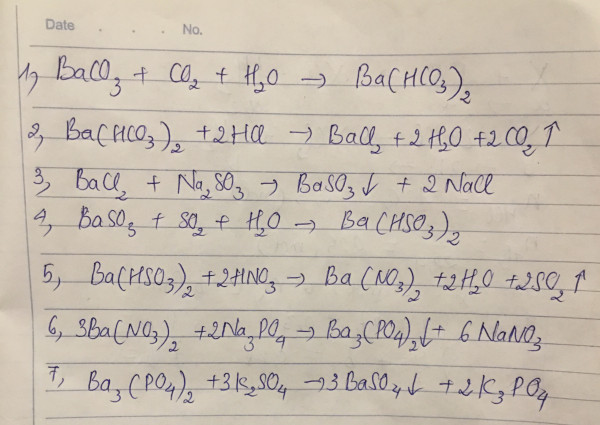 Date . . . No.
1, BaCO₃ + CO₂ + H₂O → Ba(HCO₃)₂
2, Ba(HCO₃)₂ + 2HCl → BaCl₂ + 2H₂O + 2CO₂ ↑
3, BaCl₂ + Na₂SO₃ → BaSO₃↓ + 2 NaCl
4, BaSO₃ + SO₂ + H₂O → Ba(HSO₃)₂
5, Ba(HSO₃)₂ + 2HNO₃ → Ba(NO₃)₂ + 2H₂O + 2SO₂ ↑
6, 3Ba(NO₃)₂ + 2Na₃PO₄ → Ba₃(PO₄)₂↓ + 6 NaNO₃
7, Ba₃(PO₄)₂ + 3K₂SO₄ → 3BaSO₄↓ + 2K₃PO₄